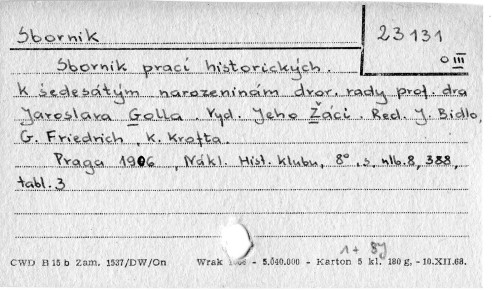 Sborník
23131
O III
Sborník prací historických.
K šedesátým narozeninám dvor. rady prof. dra
Jaroslava Golla. Vyd. Jeho Žáci. Red. J. Bidlo,
G. Friedrich, K. Krofta.
Praga 1906, Nákl. Hist. klubu, 8°, s. nlb. 8, 388,
tabl. 3
1 + 89
CWD B 15 b Zam. 1537/DW/On Wrak - 5.040.000 - Karton 5 kl. 180 g. - 10.XII.68.